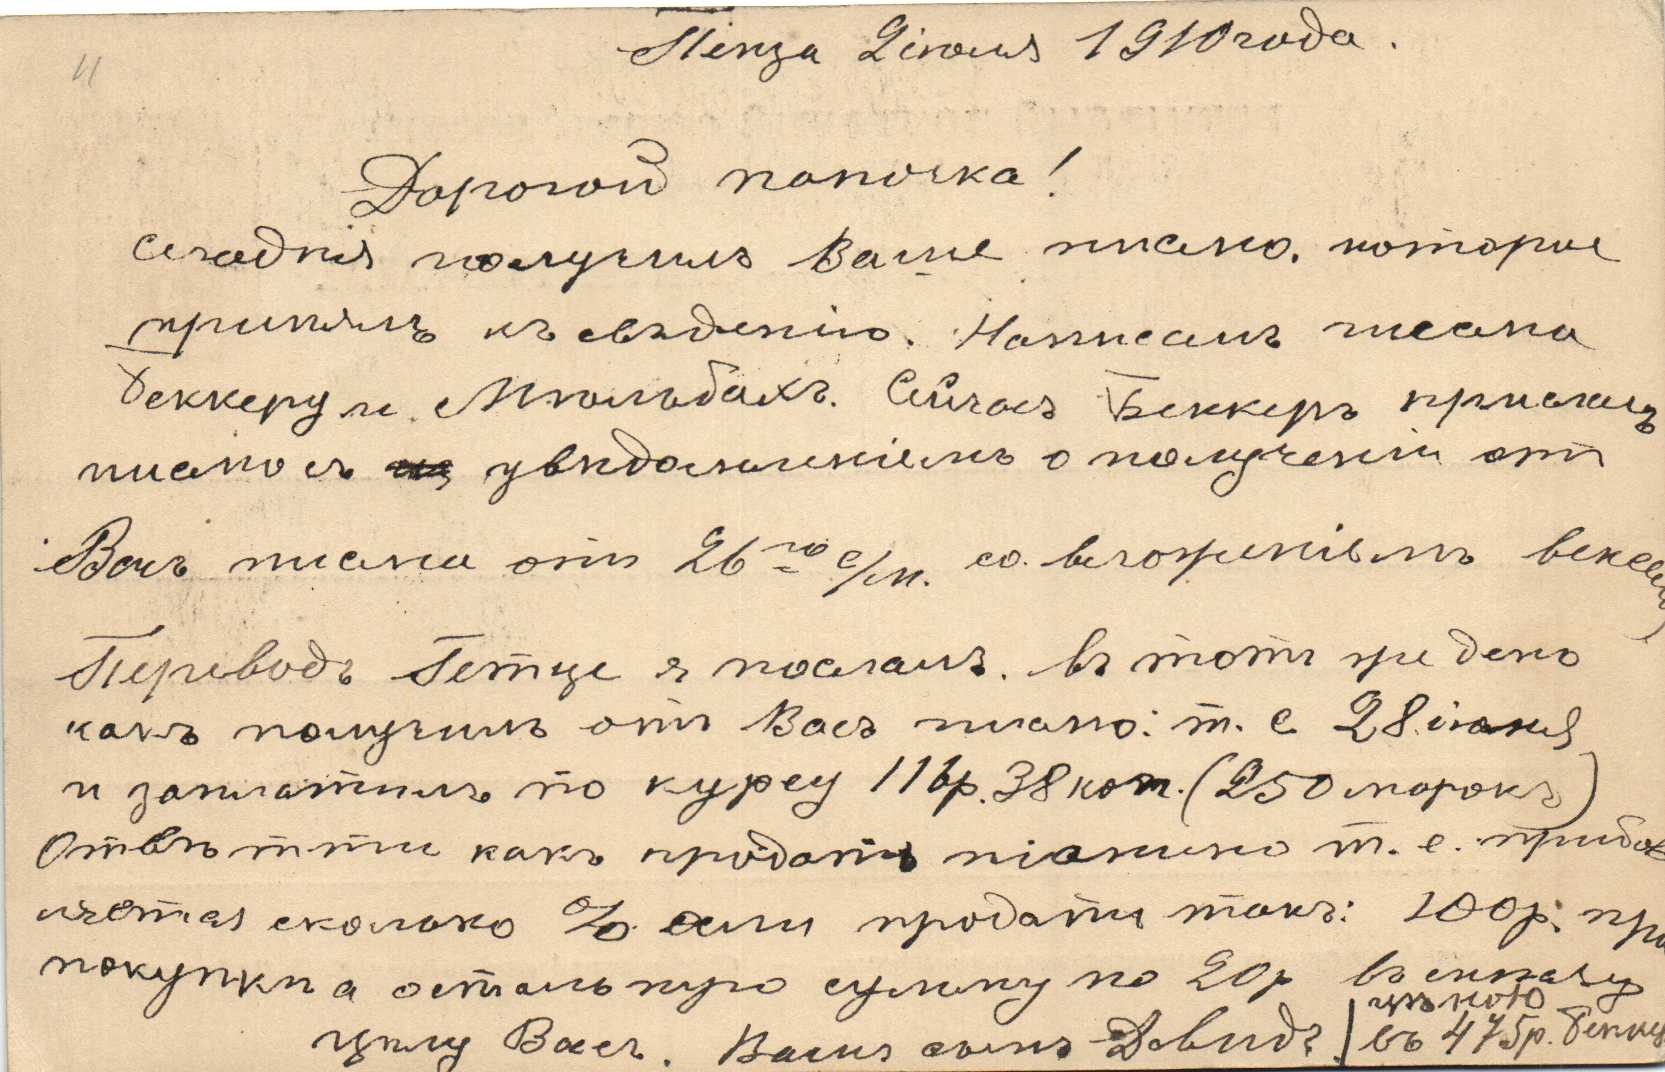 11
Пенза 2 іюля 1910 года.
Дорогой папочка!
Сегодня получилъ Ваше письмо, которое
принялъ къ свѣдению. Написалъ письма
Беккеру и Мюльбахъ. Сейчасъ Беккеръ прислалъ
письмо съ увѣдомленіемъ о полученіи отъ
Васъ письма отъ 26го с/м. со вложеніемъ векселя
Переводъ Гетце я послалъ. въ тотъ же день
какъ получилъ отъ Васъ письмо: т. е 28 іюня
и заплатилъ по курсу 116р. 38 коп. (250 марокъ)
Отвѣтьте какъ продать піанино т. е.
считая сколько % если продать такъ: 100р: при
покупкѣ а остальную сумму по 20р въ
цѣлую Васъ. Вашъ сынъ Давидъ | цѣною
въ 475р.